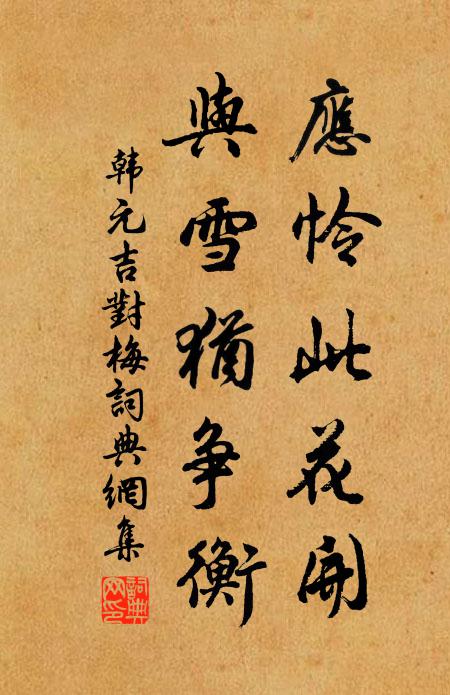 應怜此花開
與雪猶争衡
韩元吉對梅詞典網集
詞典网印